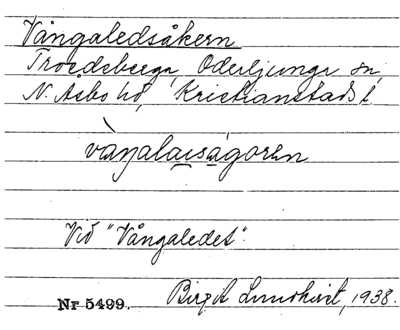 Vångaledsåkern
Troedsberga, Oderljunga sn,
N. Åsbo hd, Kristianstads l
vàŋalaıságoren
Vid "Vångaledet".
Nr 5499. Birgit Lundkvist, 1938.